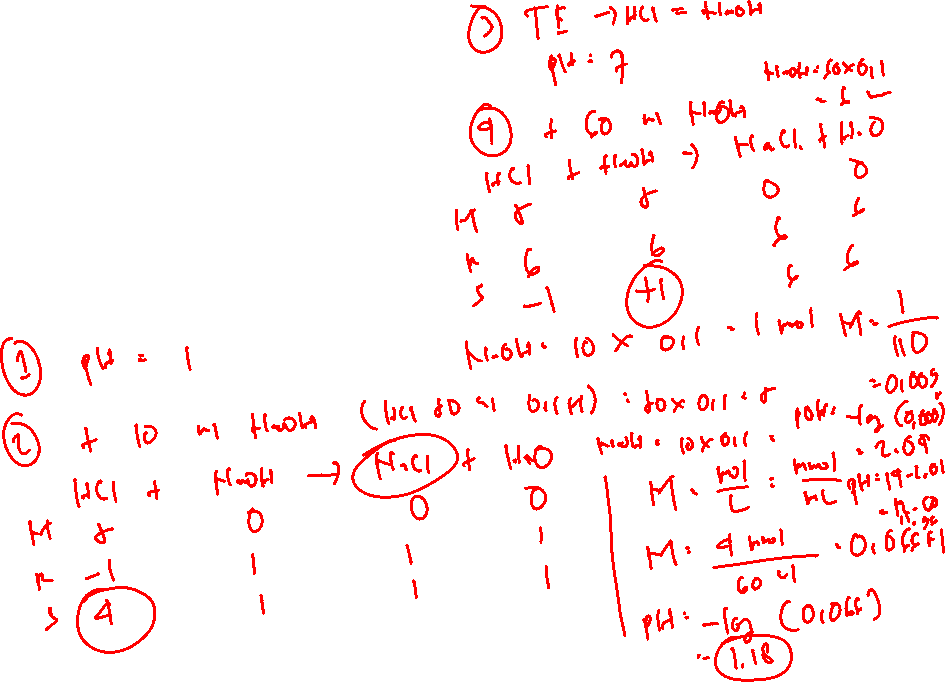 ③ TE → HCl = NaOH
pH = 7
④ + 60 ml NaOH
HCl + NaOH → NaCl + H2O
M 5 5 0 0
R 6 6 5 5
S -1 +1 5 5
NaOH = 10 × 0,1 = 1 mol M = 1/110
= 0,009
pOH = -log (0,009)
= 2.04
① pH = 1
② + 10 ml NaOH (HCl 50 ml 0,1 M) = 50 × 0,1 = 5
HCl + NaOH → NaCl + H2O
M 5 0 0 0
R -1 1 1 1
S 4 1 1 1
NaOH = 10 × 0,1 =
M = mol/L = mmol/mL
M = 4 mmol/60 ml = 0,06667
pH = -log (0,066)
= 1.18